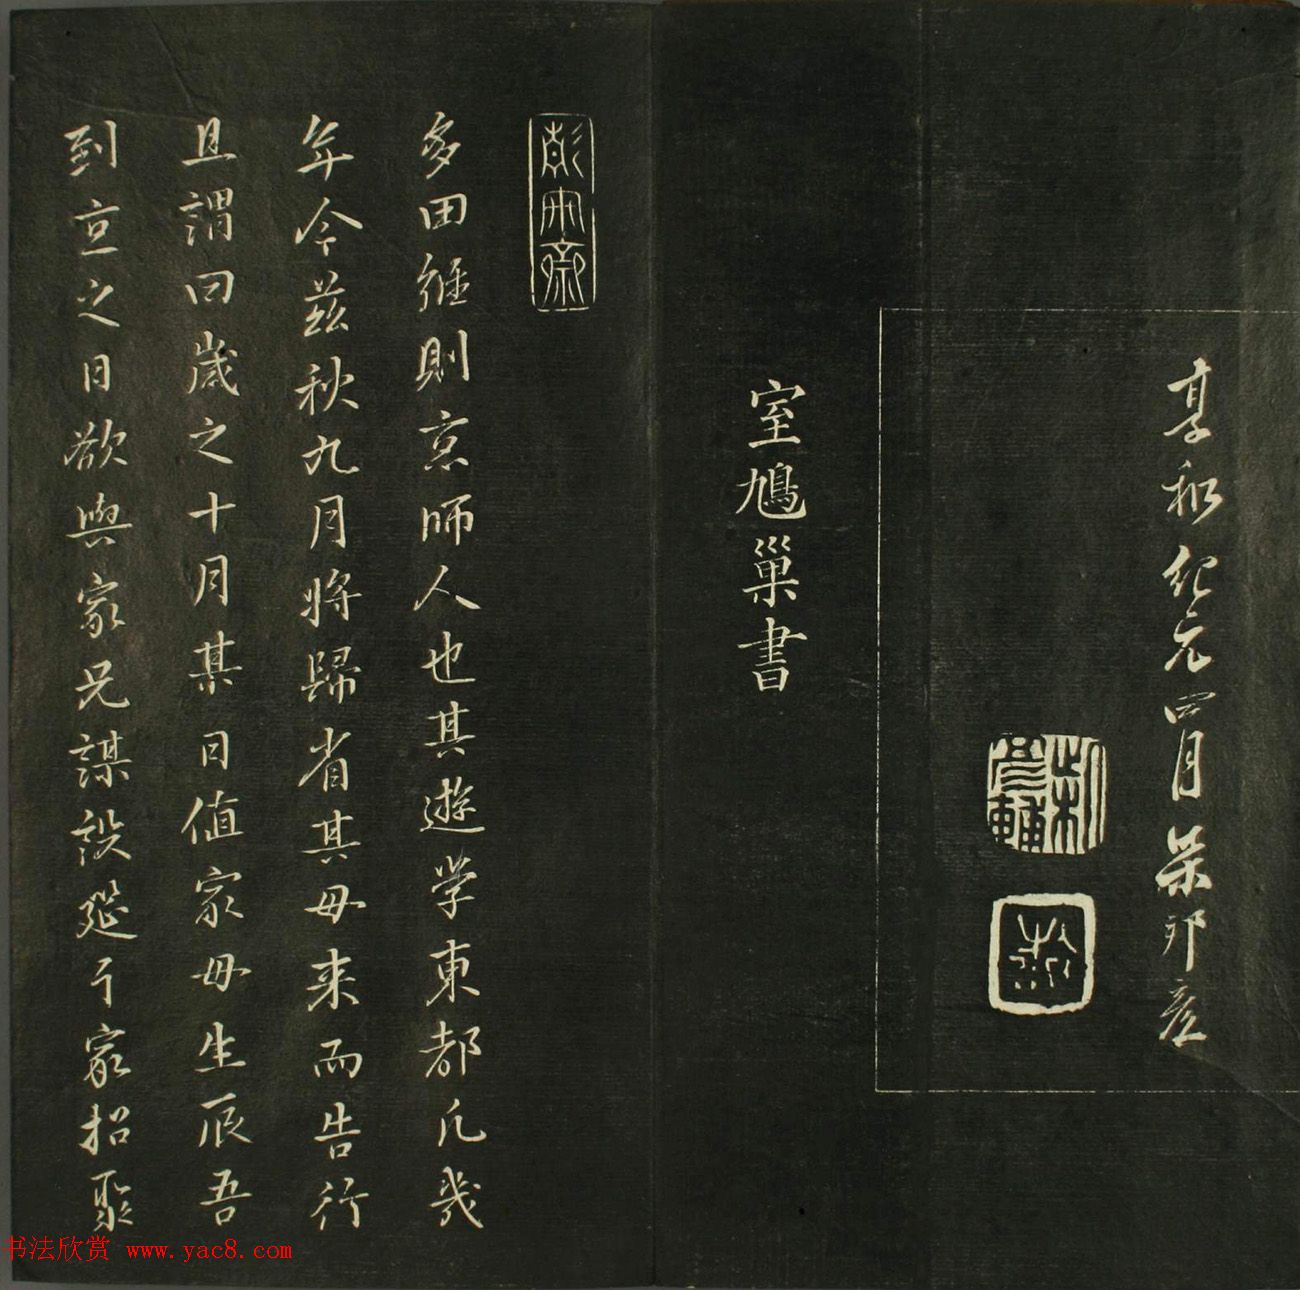 享和紀元四月柴邦彦
室鳩巢書
多田維則京師人也其遊学東都凡幾
年今茲秋九月将歸省其母来而告行
且謂曰歲之十月某日值家母生辰吾
到京之日欲與家兄謀設筵于家招聚
书法欣赏 www.yac8.com